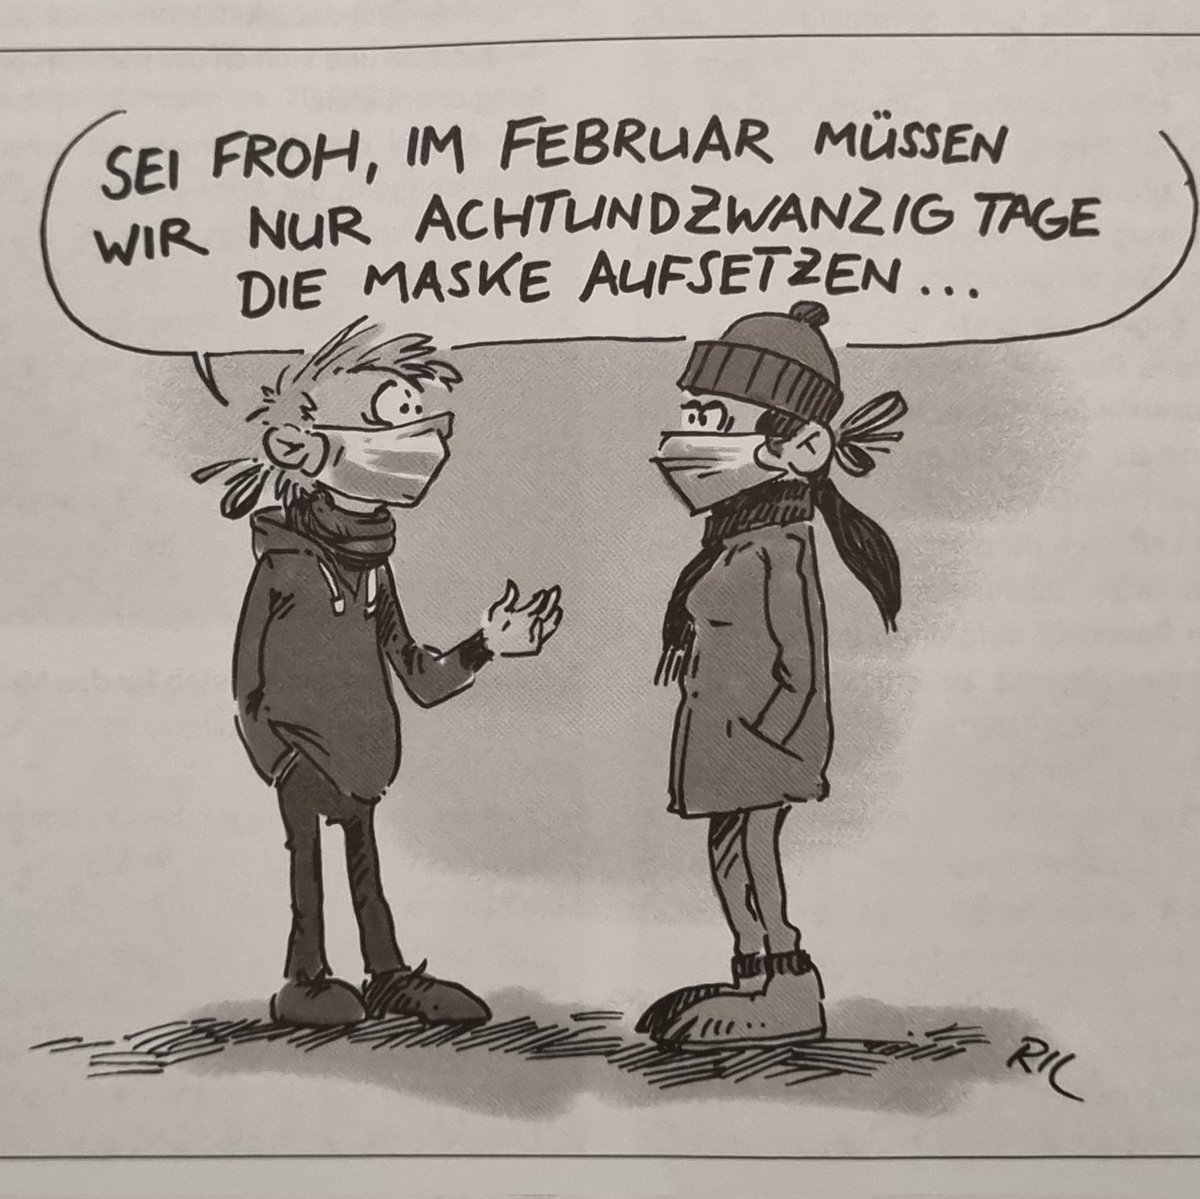 SEI FROH, IM FEBRUAR MÜSSEN
WIR NUR ACHTUNDZWANZIG TAGE
DIE MASKE AUFSETZEN...